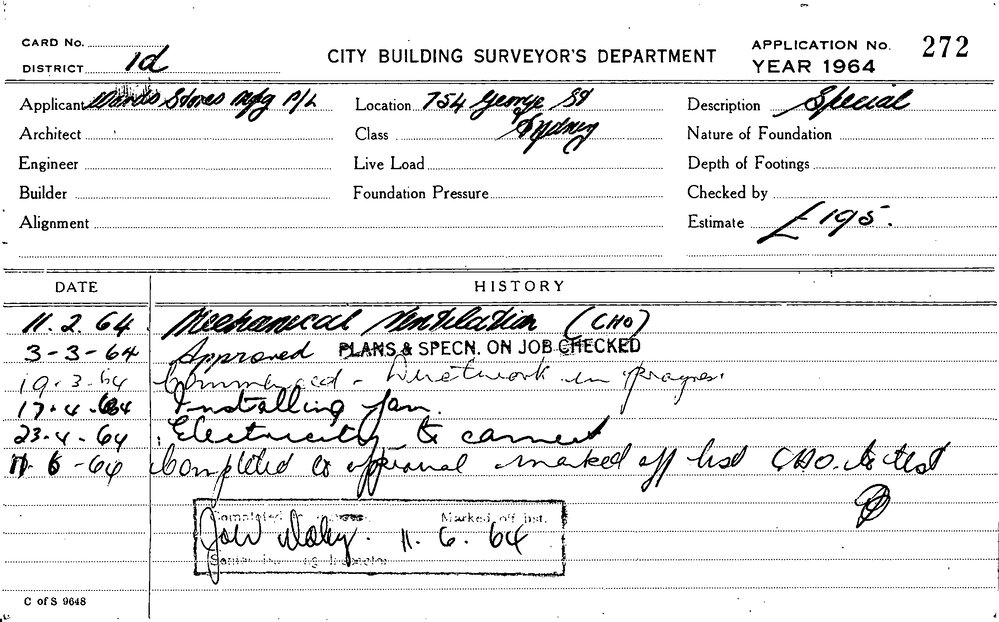 CARD No.
DISTRICT 1d
CITY BUILDING SURVEYOR'S DEPARTMENT
APPLICATION No. 272
YEAR 1964
Applicant Stores Mfg P/L
Location 754 George St
Sydney
Description Special
Architect
Class
Nature of Foundation
Engineer
Live Load
Depth of Footings
Builder
Foundation Pressure
Checked by
Alignment
Estimate £195.
DATE HISTORY
11.2.64 Mechanical Ventilation (CHO)
3-3-64 Approved PLANS & SPECN. ON JOB CHECKED
19.3.64 Commenced - Ductwork in progress.
17.4.64 Installing fan.
23.4.64 Electricity to connect
11.6.64 Completed to approval marked off list CHO. to test
Completed Marked off list.
11.6.64
Inspector
C of S 9648